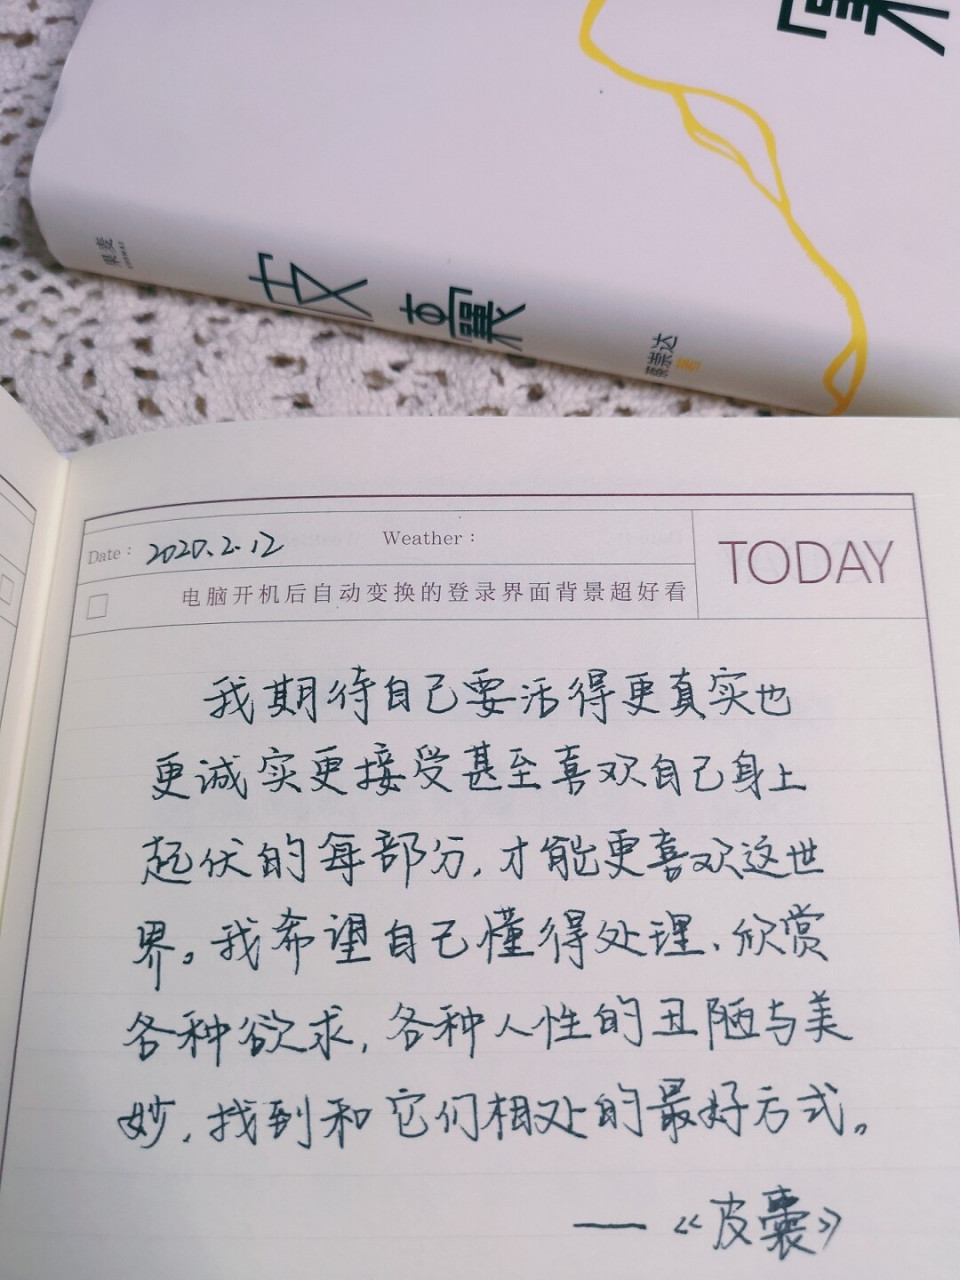 皮囊
蔡崇达 著
果麦
Date： 2020.2.12
Weather：
TODAY
电脑开机后自动变换的登录界面背景超好看
我期待自己要活得更真实也
更诚实更接受甚至喜欢自己身上
起伏的每部分，才能更喜欢这世
界。我希望自己懂得处理、欣赏
各种欲求，各种人性的丑陋与美
妙，找到和它们相处的最好方式。
——《皮囊》